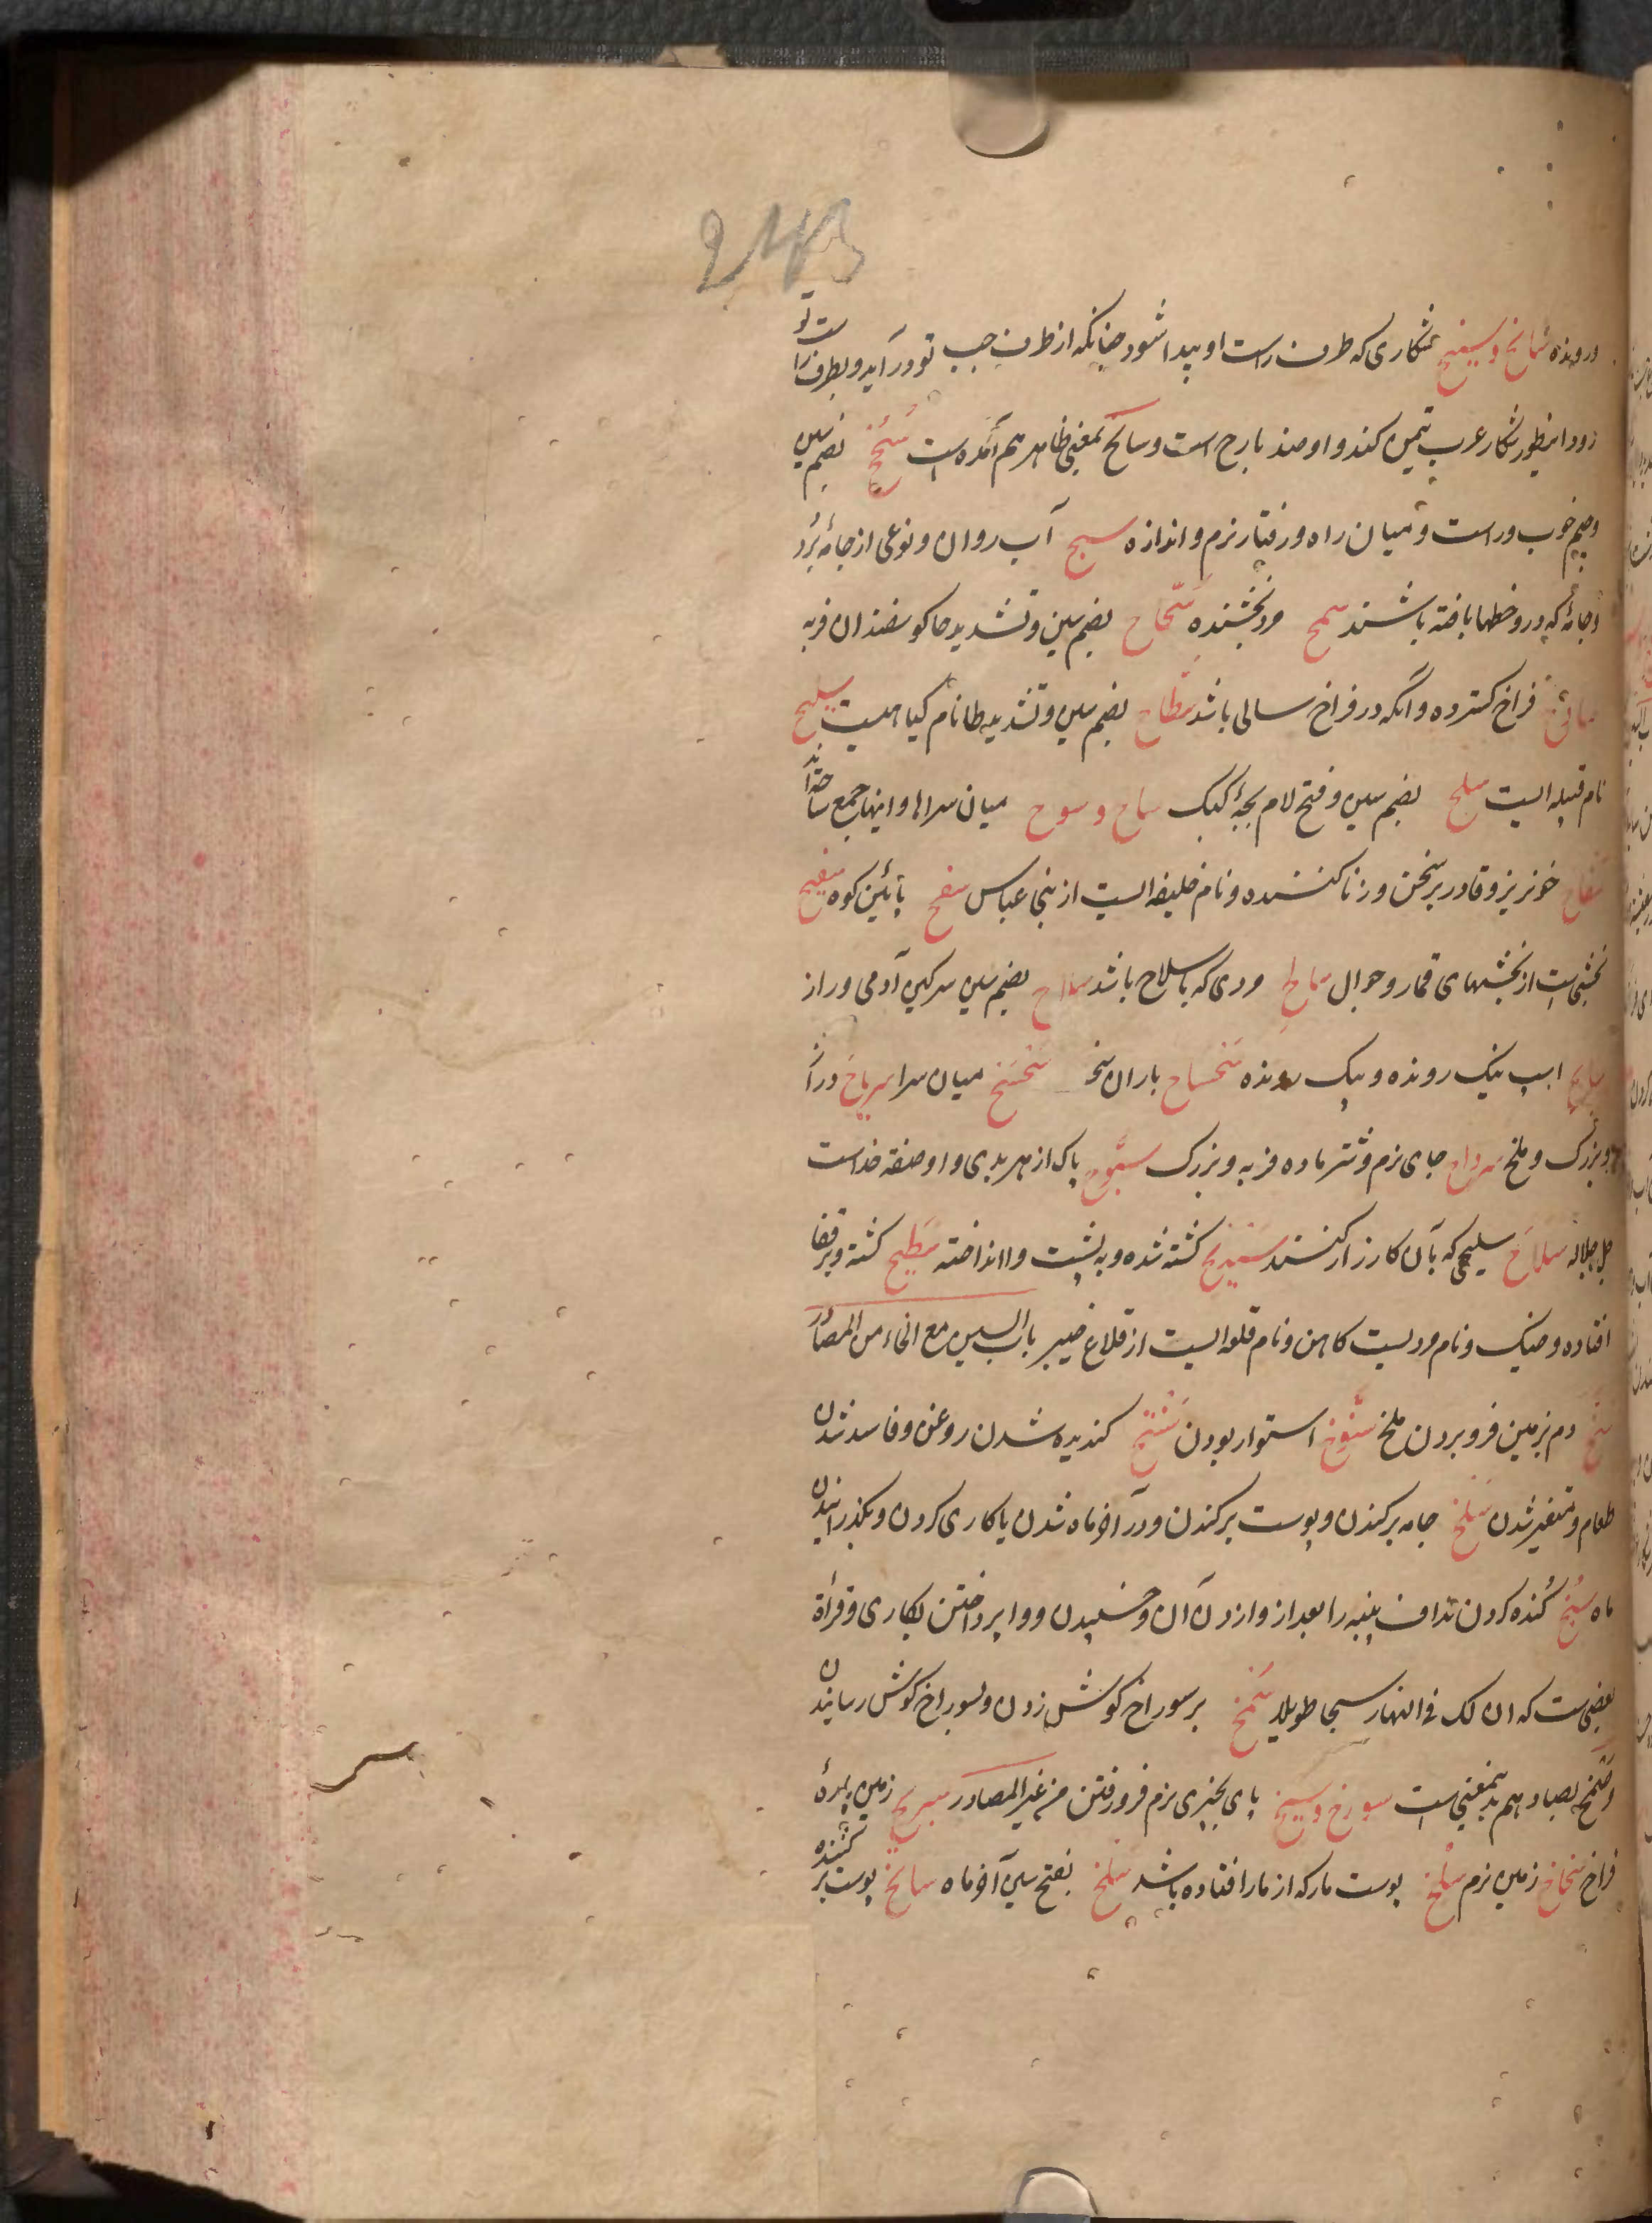 243
و رونده سانح و سنیح شکاری که طرف راست او پیدا شود چنانکه از طرف چپ تو درآید و بطرف راست تو
رود اینطور شکار عرب تیمن کند و او ضد بارح است و سانح بمعنی ظاهر هم آمده است سُجُح بضم سین
و جیم خوب و راست و میان راه و رفتار نرم و اندازه سیح آب روان و نوعی از جامه برد
و جامهٔ که درو خطها بافته باشند سمح مرد بخشنده سُحّاح بضم سین و تشدید حا کوسفندان فربه
فراخ کسترده و آنکه در فراخ سالی باشد سُطّاح بضم سین و تشدید طا نام کیاهیست سلیح
نام قبیله ایست سلح بضم سین و فتح لام بچهٔ کبک ساح و سوح میان سراها و اینها جمع ساحة اند
سفاح خونریز و قادر بر سخن و زنا کننده و نام خلیفه ایست از بنی عباس سفح پائین کوه سفیح
بخشی است از بخشهای قمار و جوال سالح مردی که با سلاح باشد سلاح بضم سین سرکین آدمی و راز
سابح اسپ نیک رونده و پیک رونده سحساح باران سخ سحسح میان سرا سریاح دراز
و بزرک و ملخ سرداح جای نرم و شتر ماده فربه و بزرک سبّوح پاک از هر بدی و او صفة خداست
جل جلاله سلاح سلیحی که بآن کارزار کنند سدیح کشته شده و به پشت وا انداخته سطیح کشته و بر قفا
افتاده و خیک و نام مردیست کاهن و نام قلعه ایست از قلاع خیبر باب السین مع الخاء من المصادر
سخ دم بزمین فرو بردن ملخ سنوخ استوار بودن سنخ کندیده شدن روغن و فاسد شدن
طعام و متغیر شدن سلخ جامه برکندن و پوست برکندن و در آخر ماه شدن یا کاری کردن و بکذرانیدن
ماه سبخ کنده کردن نداف پنبه را بعد از وازدن آن و خسپیدن و وا پرداختن بکاری و قراة
بعضی است که ان لک فی النهار سبخا طویلا سمخ بر سوراخ کوش زدن و بسوراخ کوش رسانیدن
و صمخ بصاد هم بدینمعنی است سوخ و سیخ پای بچیزی نرم فرو رفتن من غیر المصادر سربخ زمین بمرهٔ
فراخ سخاخ زمین نرم سلخ پوست مار که از مار افتاده باشد سلخ بفتح سین آخر ماه سالخ پوست بر کننده